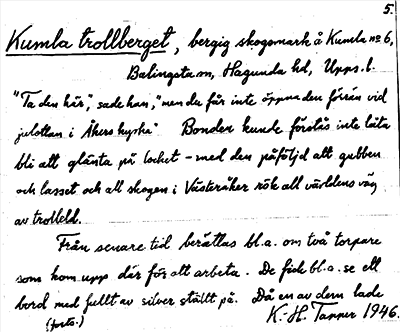 5.
Kumla trollberget, bergig skogsmark å Kumla no 6,
Balingsta sn, Hagunda hd, Upps. l.
"Ta den här", sade han, "men du får inte öppna den förrän vid
julottan i Åkers kyrka". Bonden kunde förstås inte låta
bli att glänta på locket – med den påföljd att gubben
och lasset och all skogen i Västeråker rök all världens väg
av trolleld.
Från senare tid berättas bl.a. om två torpare
som kom upp där för att arbeta. De fick bl.a. se ett
bord med fullt av silver ställt på. Då en av dem lade
(forts.) K.-H. Tapper 1946.